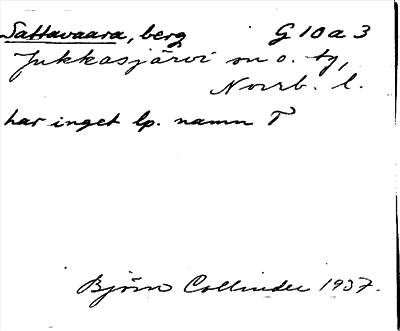 Sattavaara, berg G 10 a 3
Jukkasjärvi sn o. tg,
Norrb. l.
har inget lp. namn T
Björn Collinder 1937.